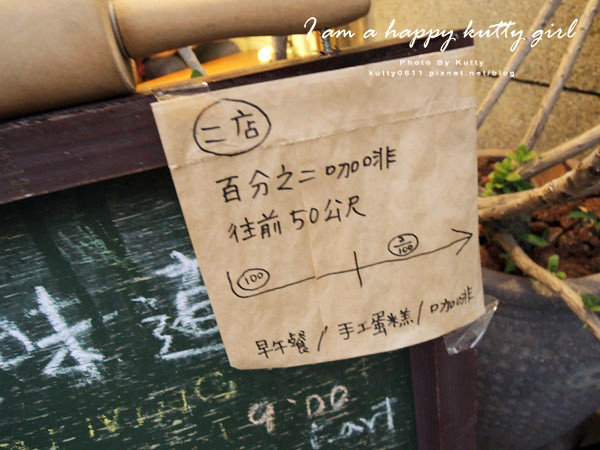 I am a happy kutty girl
Photo By Kutty
kutty0611.pixnet.net/blog
二店
百分之二咖啡
往前50公尺
100
2/100
早午餐/手工蛋糕/咖啡
味道
9:00